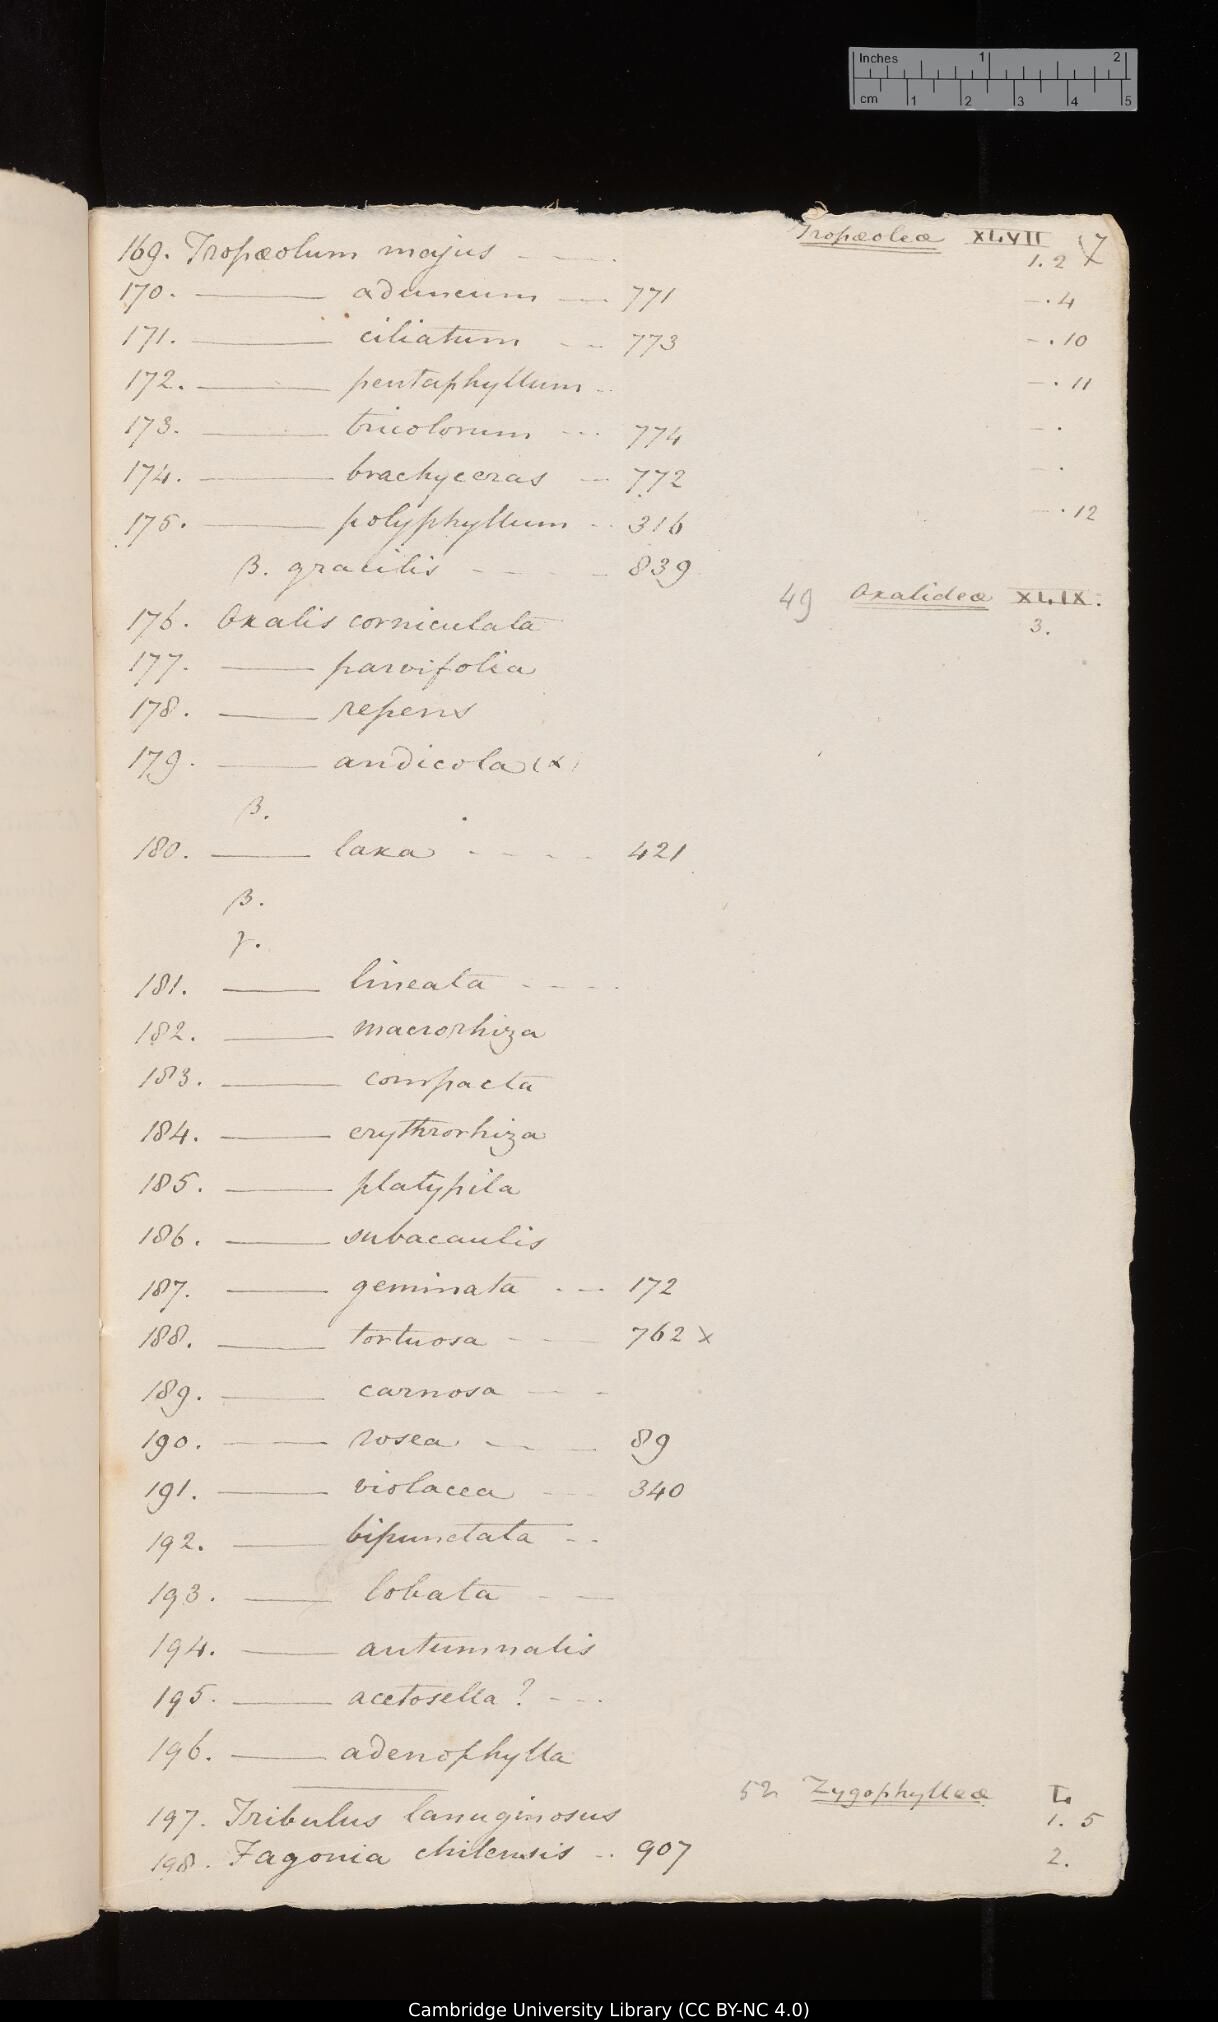 Inches 1 2
cm 1 2 3 4 5
Tropæoleæ XLVII 7
169. Tropæolum majus - - - 1. 2
170. ——— aduncum - - 771 - . 4
171. ——— ciliatum - - 773 - . 10
172. ——— pentaphyllum - - . 11
173. ——— tricolorum - - - 774 - .
174. ——— brachyceras - 772 - .
175. ——— polyphyllum - - 316 - . 12
β. gracilis - - - - 839
49 Oxalideæ XLIX.
176. Oxalis corniculata 3.
177. ——— parvifolia
178. ——— repens
179. ——— andicola (α)
β.
180. ——— laxa - - - - 421
β.
γ.
181. ——— lineata - - - -
182. ——— macrorhiza
183. ——— compacta
184. ——— erythrorhiza
185. ——— platypila
186. ——— subacaulis
187. ——— geminata - - - 172
188. ——— tortuosa - - - 762 x
189. ——— carnosa - - -
190. ——— rosea - - - 89
191. ——— violacea - - - 340
192. ——— bipunctata - -
193. ——— lobata - -
194. ——— autumnalis
195. ——— acetosella? - - -
196. ——— adenophylla
52 Zygophylleæ L.
197. Tribulus lanuginosus 1. 5
198. Fagonia chilensis - - 907 2.
Cambridge University Library (CC BY-NC 4.0)